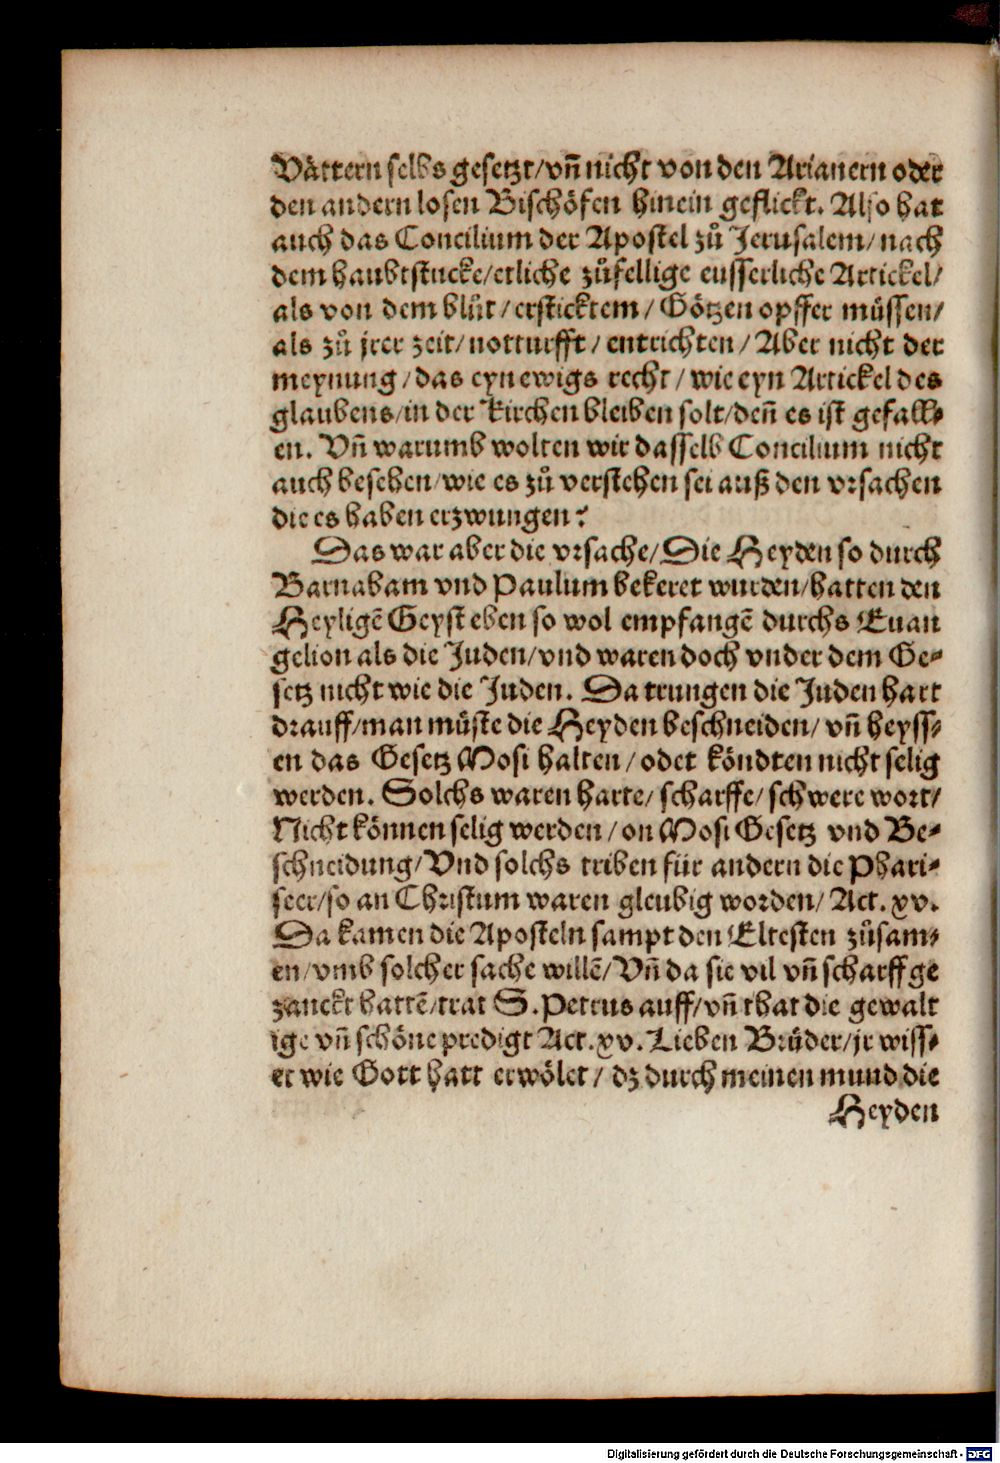 Vättern selbs gesetzt/vñ nicht von den Arianern oder
den andern losen Bischöfen hinein geflickt. Also hat
auch das Concilium der Apostel zů Jerusalem/nach
dem haubtstucke/etliche zůfellige eusserliche Artickel/
als von dem blůt/ersticktem/Götzen opffer müssen/
als zů jrer zeit/notturfft/entrichten/Aber nicht der
meynung/das eyn ewigs recht/wie eyn Artickel des
glaubens/in der Kirchen bleiben solt/deñ es ist gefall⸗
en. Vñ warumb wolten wir dasselb Concilium nicht
auch besehen/wie es zů verstehen sei auß den vrsachen
die es haben erzwungen?
Das war aber die vrsache/Die Heyden so durch
Barnabam vnd Paulum bekeret wurden/hatten den
Heyligē Geyst eben so wol empfangē durchs Euan
gelion als die Juden/vnd waren doch vnder dem Ge⸗
setz nicht wie die Juden. Da trungen die Juden hart
drauff/man müste die Heyden beschneiden/vñ heyss⸗
en das Gesetz Mosi halten/odet köndten nicht selig
werden. Solchs waren harte/scharffe/schwere wort/
Nicht können selig werden/on Mosi Gesetz vnd Be⸗
schneidung/Vnd solchs triben für andern die Phari⸗
seer/so an Christum waren gleubig worden/Act. xv.
Da kamen die Aposteln sampt den Eltesten zůsam⸗
en/vmb solcher sache willē/Vñ da sie vil vñ scharff ge
zanckt hattē/trat S. Petrus auff/vñ that die gewalt
ige vñ schöne predigt Act. xv. Lieben Brüder/jr wiss⸗
et wie Gott hatt erwölet/dz durch meinen mund die
Heyden
Digitalisierung gefördert durch die Deutsche Forschungsgemeinschaft - DFG